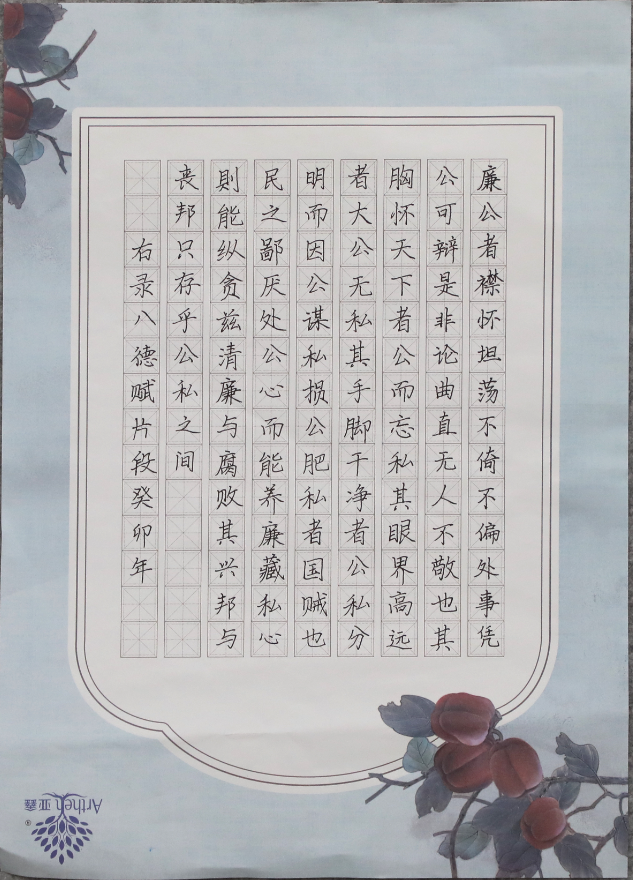 廉公者襟怀坦荡不倚不偏处事凭
公可辩是非论曲直无人不敬也其
胸怀天下者公而忘私其眼界高远
者大公无私其手脚干净者公私分
明而因公谋私损公肥私者国贼也
民之鄙厌处公心而能养廉藏私心
則能纵贪兹清廉与腐败其兴邦与
丧邦只存乎公私之间
右录八德赋片段癸卯年
Artheh 亚鑫